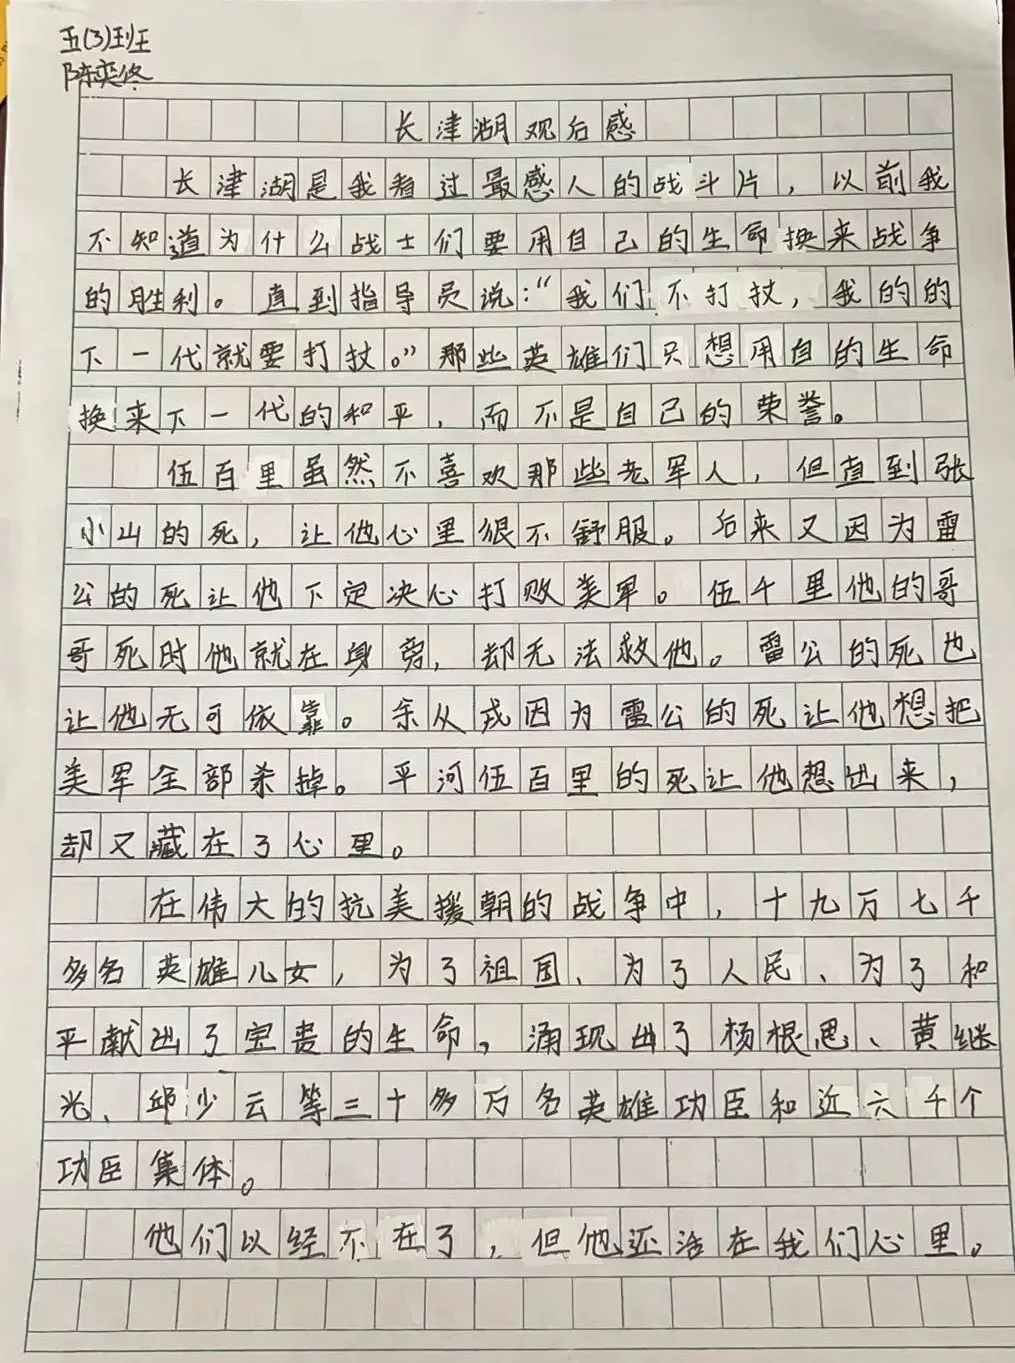 五(3)班
陈奕佟
长津湖观后感
长津湖是我看过最感人的战斗片，以前我
不知道为什么战士们要用自己的生命换来战争
的胜利。直到指导员说：“我们不打扙，我的的
下一代就要打扙。”那些英雄们只想用自的生命
换来下一代的和平，而不是自己的荣誉。
伍百里虽然不喜欢那些老军人，但直到张
小山的死，让他心里很不舒服。后来又因为雷
公的死让他下定决心打败美军。伍千里他的哥
哥死时他就在身旁，却无法救他。雷公的死也
让他无可依靠。余从戎因为雷公的死让他想把
美军全部杀掉。平河伍百里的死让他想出来，
却又藏在了心里。
在伟大的抗美援朝的战争中，十九万七千
多名英雄儿女，为了祖国、为了人民、为了和
平献出了宝贵的生命，涌现出了杨根思、黄继
光、邱少云等三十多万名英雄功臣和近六千个
功臣集体。
他们以经不在了，但他还活在我们心里。